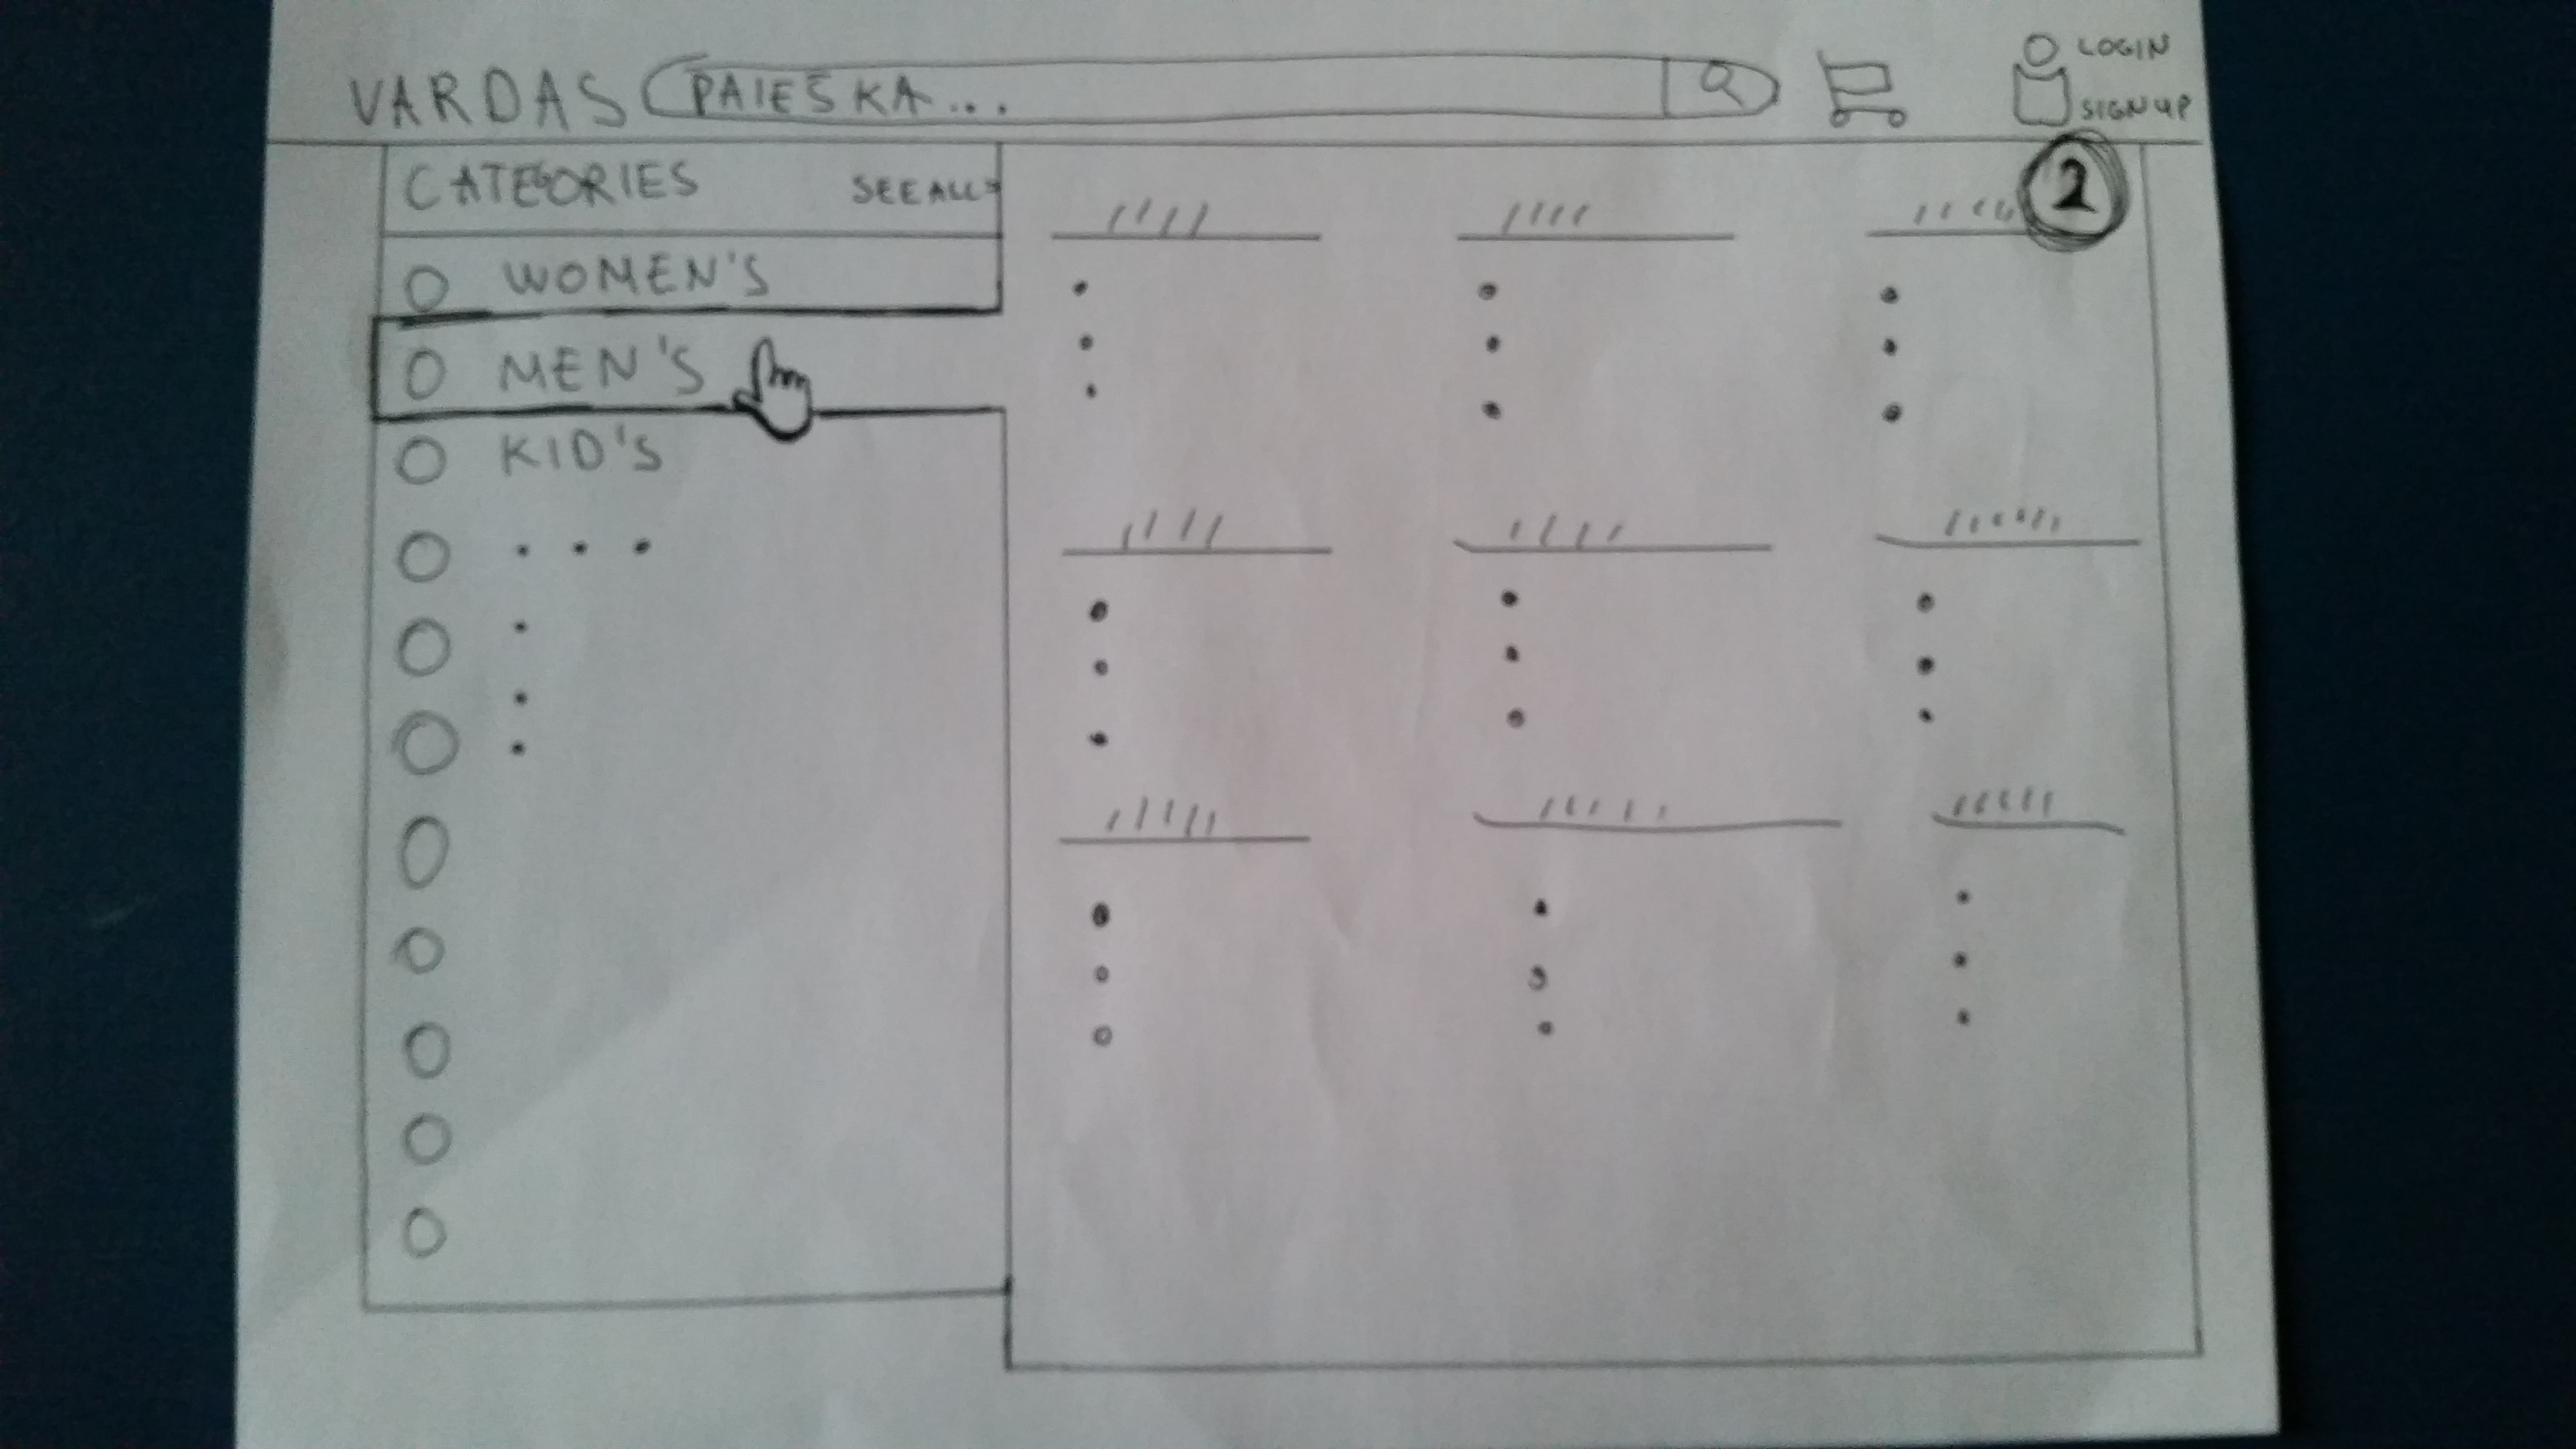 VARDAS PAIEŠKA...
LOGIN
SIGN UP
2
CATEGORIES SEE ALL>
WOMEN'S
MEN'S
KID'S
. . .